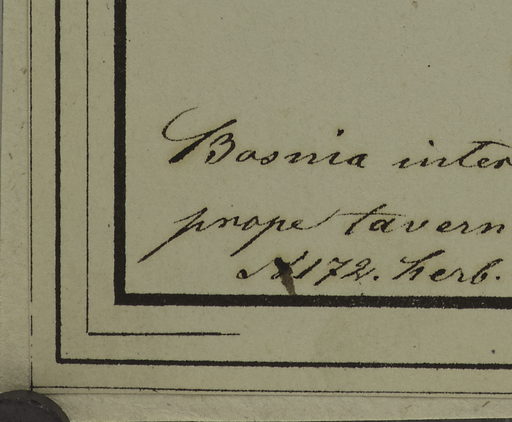 Bosnia inter
prope tavern
N 172. herb.